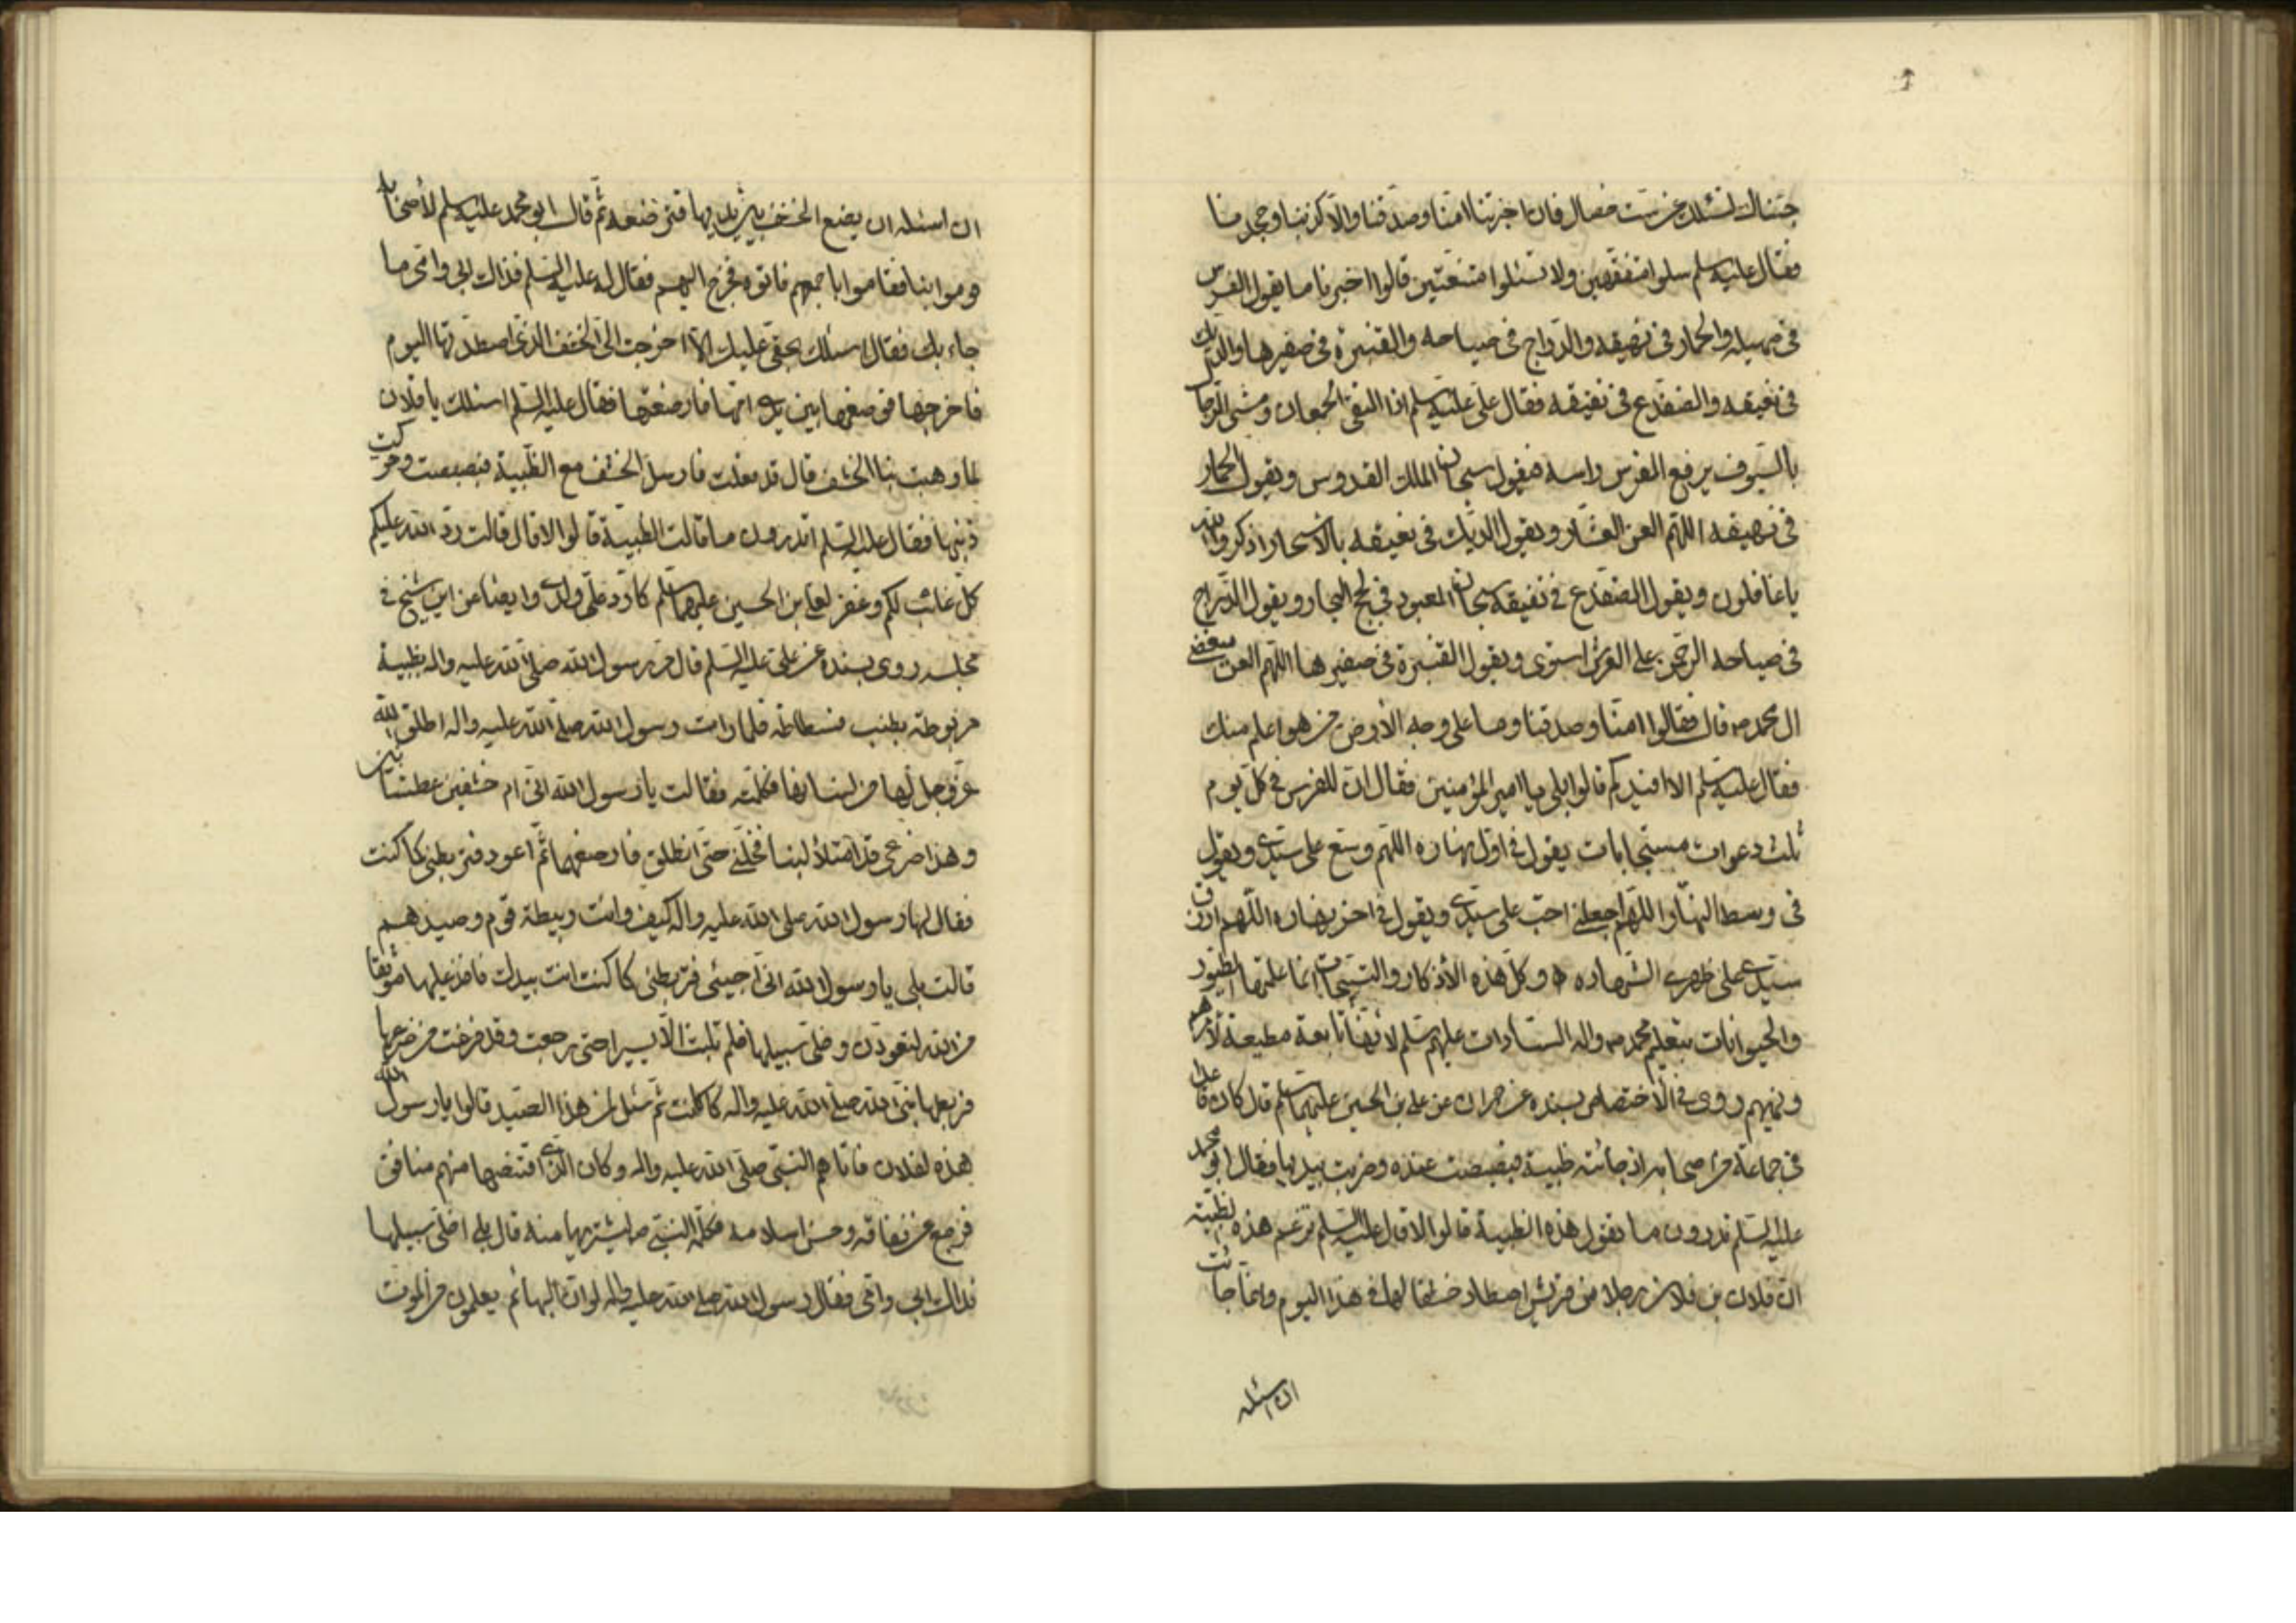 جئناك لنسئلك عن ست خصال فان اخبرتنا امنا وصدقنا والا كذبنا وجحدنا
فقال عليه سلم سلوا متفقهين ولا تسئلوا متعنتين قالوا اخبرنا ما يقول الفرس
فى صهيله والحمار فى نهيقه والدراج فى صياحه والقنبرة فى صفيرها والديك
فى نعيقه والضفدع فى نقيقه فقال على عليه سلم اذا التقى الجمعان ومشى الرجال
بالسيوف يرفع الفرس راسه فيقول سبحان الملك القدوس ويقول الحمار
فى نهيقه اللهم العن العشار ويقول الديك فى نعيقه بالاسحار اذكروا الله
يا غافلون ويقول الضفدع فى نقيقه سبحان المعبود فى لجج البحار ويقول الدراج
فى صياحه الرحمن على العرش استوى ويقول القنبرة فى صفيرها اللهم العن مبغضى
ال محمد ص قال فقالوا امنا وصدقنا وما على وجه الأرض من هو اعلم منك
فقال عليه سلم الا افيدكم قالوا بلى يا امير المؤمنين فقال ان للفرس فى كل يوم
ثلث دعوات مستجابات يقول فى اول نهاره اللهم وسع على سيدى ويقول
فى وسط النهار اللهم اجعلنى احب على سيدى ويقول فى اخر نهاره اللهم ارزق
سيدى على ظهرى الشهاده وكل هذه الأذكار والتسبيحات انما علمها الطيور
والحيوانات بتعليم محمد ص واله السادات عليهم سلم لانها تابعة مطيعة لأمرهم
ونهيهم وروى فى الاختصاص بسنده عن حمران عن على بن الحسين عليهما سلم قال كان قاعدا
فى جماعة من اصحابه اذ جائته ظبية فبصبصت عنده وضربت بيديها فقال ابو محمد
عليه السلم تدرون ما تقول هذه الظبية قالوا لا قال عليه السلم تزعم هذه الظبية
ان فلان بن فلان رجلا من قريش اصطاد خشفا لها فى هذا اليوم وانما جائت
ان اسئله
ان اسئله ان يضع الخشف بين يديها فترضعه ثم قال ابو محمد عليه سلم لأصحابه
قوموا بنا فقاموا باجمعهم فاتوه فخرج اليهم فقال له عليه السلم فداك ابى وامى ما
جاء بك فقال اسئلك بحقى عليك الا اخرجت الى الخشف الذى اصطدتها اليوم
فاخرجها فوضعها بين يدى امها فارضعتها فقال عليه السلم اسئلك يا فلان
لما وهبت بنا الخشف قال قد فعلت فارسل الخشف مع الظبية فبصبصت وحركت
ذنبها فقال عليه السلم اتدرون ما قالت الظبية قالوا لا قال قالت رد الله عليكم
كل غائب لكم وغفر لعلى بن الحسين عليهما سلم كما رد على ولدى وايضا عن ابن شيخ فى
مجلسه روى بسنده عن على عليه السلم قال مر رسول الله صلى الله عليه واله بظبية
مربوطة بطنب فسطاطه فلما رات رسول الله صلى الله عليه واله اطلق الله
عز وجل لها من لسانها فكلمته فقالت يا رسول الله انى ام خشفين عطشانين
وهذا ضرعى قد امتلأ لبنا فخلنى حتى انطلق فارضعهما ثم اعود فتربطنى كما كنت
فقال لها رسول الله صلى الله عليه واله كيف وانت ربيطة قوم وصيدهم
قالت بلى يا رسول الله انى اجيئى فتربطنى كما كنت انت بيدك فاخذ عليها موثقا
من الله لتعودن وخلى سبيلها فلم تلبث الا يسيرا حتى رجعت وقد فرغت من ضرعها
فربطها نبى الله صلى الله عليه واله كما كانت ثم سئل لمن هذا الصيد قالوا يا رسول الله
هذه لفلان فاتاهم النبى صلى الله عليه واله وكان الذى اقتنصها منهم منافق
فرجع من نفاقه وحسن اسلامه فكلمه النبى ص ليشتريها منه قال بلى اخلى سبيلها
فداك ابى وامى فقال رسول الله صلى الله عليه واله لو ان البهائم يعلمون من الموت